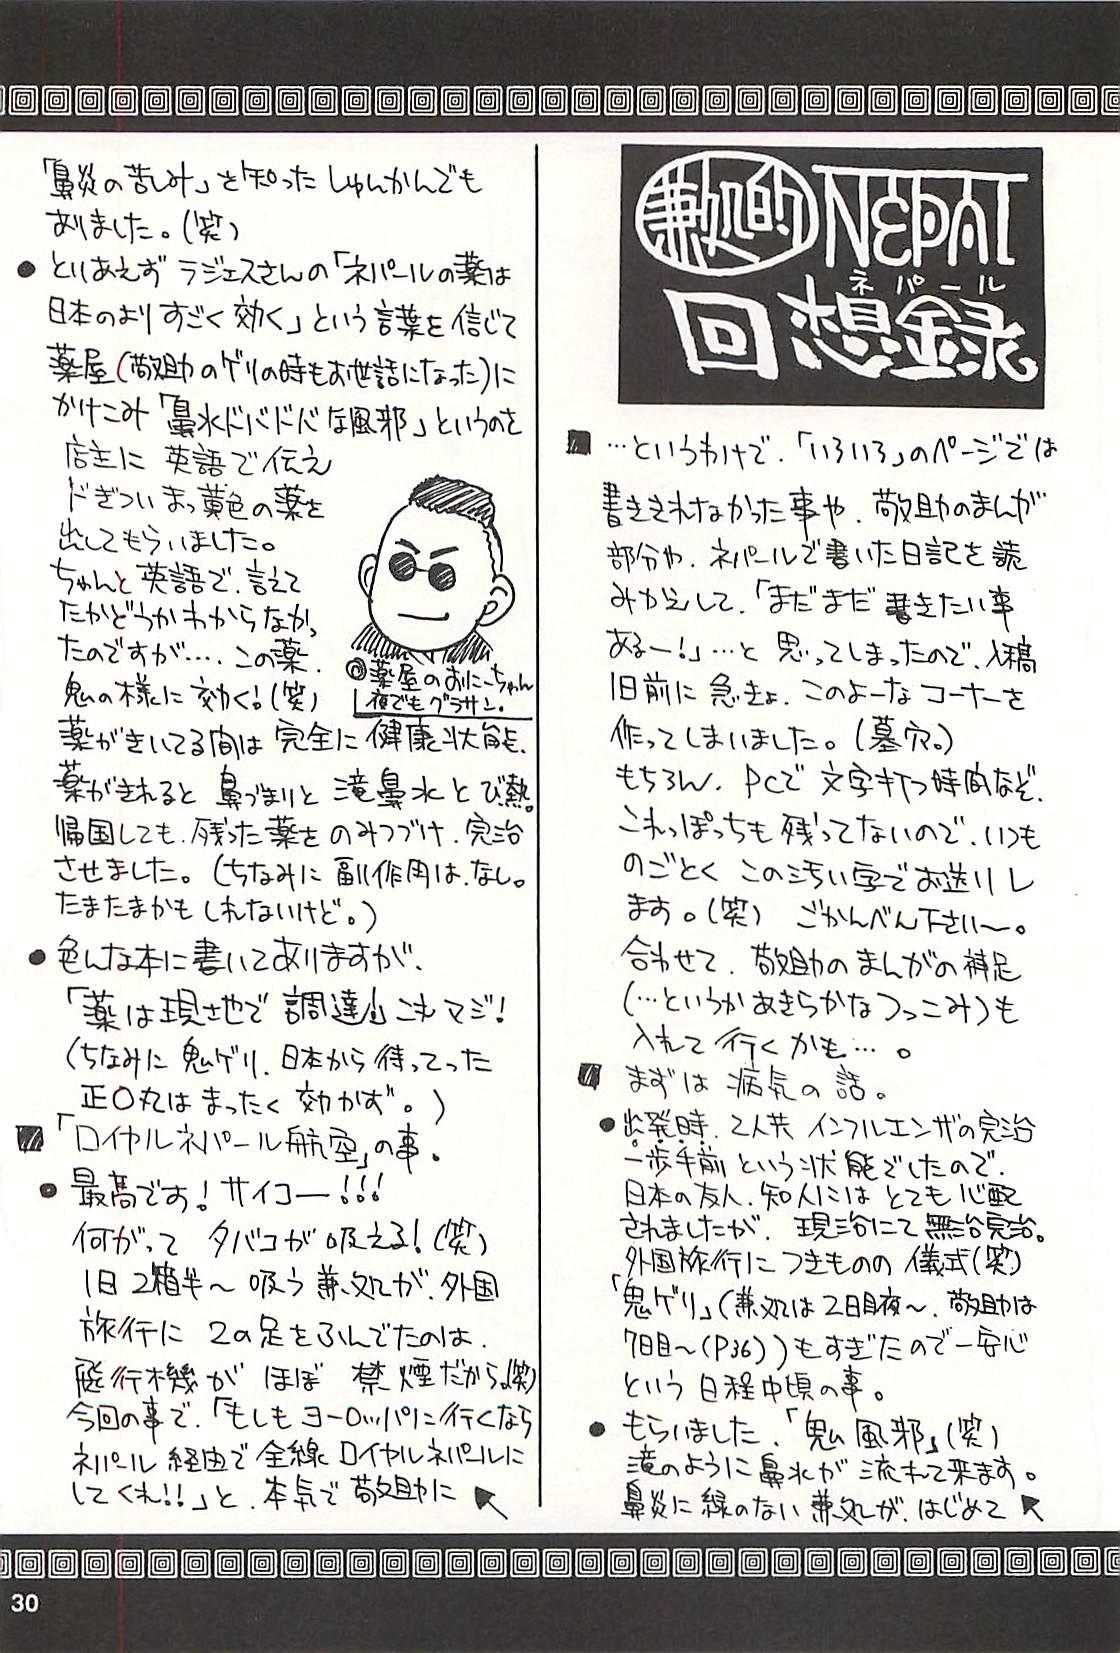 兼処的NEPAL
ネパール
回想録
…というわけで、「いろいろ」のページでは
書ききれなかった事や、敬助のまんが
部分や、ネパールで書いた日記を読
みかえして、「まだまだ書きたい事
あるー!」…と思ってしまったので、入稿
1日前に急きょ、このよーなコーナーを
作ってしまいました。(墓穴。)
もちろん、PCで文字打つ時間など、
これっぽっちも残ってないので、いつも
のごとくこの汚い字でお送りし
ます。(笑) ごかんべん下さい〜。
合わせて、敬助のまんがの補足
(…というかあきらかなつっこみ)も
入れて行くかも…。
まずは病気の話。
●出発時、2人共インフルエンザの完治
一歩手前という状態でしたので、
日本の友人、知人にはとても心配
されましたが、現治にて無治完治。
外国旅行につきものの儀式(笑)
「鬼ゲリ」(兼処は2日目夜〜、敬助は
7日目〜(P36))もすぎたので一安心
という日程中頃の事。
●もらいました、「鬼風邪」(笑)
滝のように鼻水が流れて来ます。
鼻炎に縁のない兼処が、はじめて
「鼻炎の苦しみ」を知ったしゅんかんでも
ありました。(笑)
●とりあえずラジェスさんの「ネパールの薬は
日本のよりすごく効く」という言葉を信じて
薬屋(敬助のゲリの時もお世話になった)に
かけこみ「鼻水ドバドバな風邪」というのを
店主に英語で伝え
ドぎついまっ黄色の薬を
出してもらいました。
ちゃんと英語で、言えて
たかどうかわからなかっ
たのですが…、この薬、
鬼の様に効く!(笑)
◎薬屋のおにーちゃん
夜でもグラサン。
薬がきいてる間は完全に健康状態、
薬がきれると鼻づまりと滝鼻水とび熱。
帰国しても、残った薬をのみつづけ、完治
させました。(ちなみに副作用は、なし。
たまたまかもしれないけど。)
●色んな本に書いてありますが、
「薬は現地で調達」これマジ!
(ちなみに鬼ゲリ、日本から持ってった
正〇丸はまったく効かず。)
「ロイヤルネパール航空」の事。
●最高です!サイコー!!!
何がってタバコが吸える!(笑)
1日2箱半〜吸う兼処が、外国
旅行に2の足をふんでたのは、
飛行機がほぼ禁煙だから。(笑)
今回の事で、「もしもヨーロッパに行くなら
ネパール経由で全線ロイヤルネパールに
してくれ!!」と、本気で敬助に
30